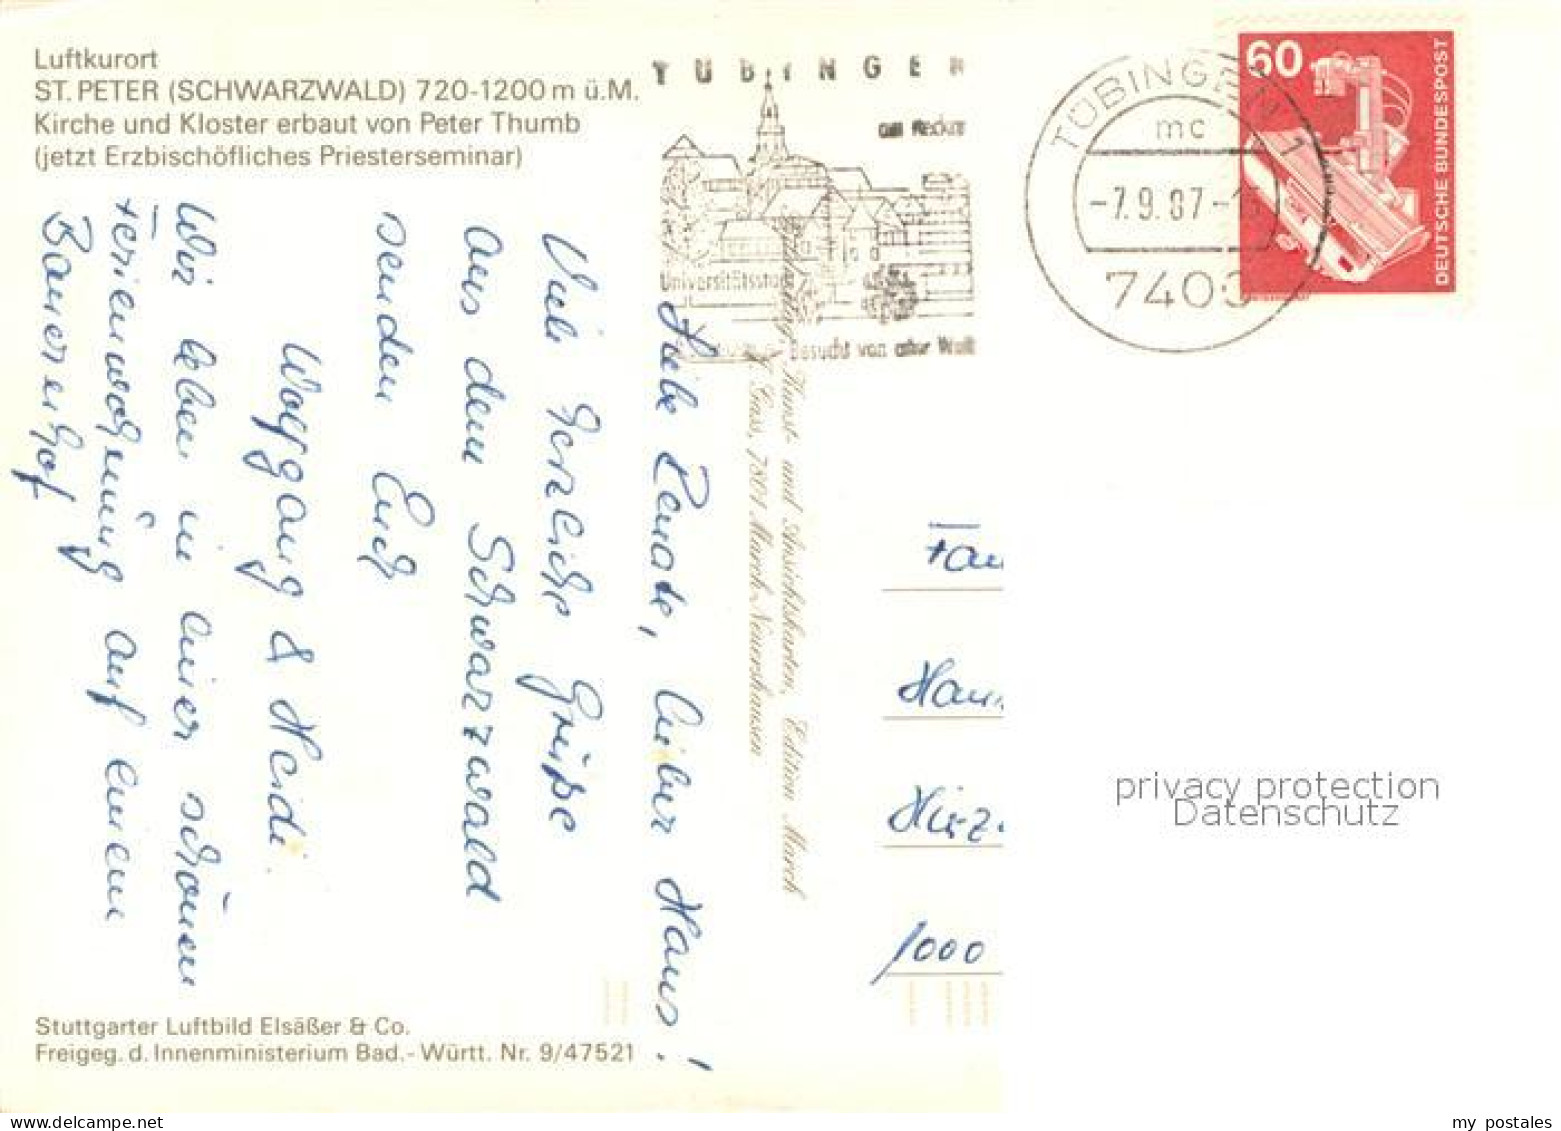 Luftkurort
ST. PETER (SCHWARZWALD) 720-1200 m ü.M.
Kirche und Kloster erbaut von Peter Thumb
(jetzt Erzbischöfliches Priesterseminar)
TÜBINGEN
am Neckar
Universitätsstadt
Besucht von aller Welt
TÜBINGEN 1
mc
-7.9.87-
7400
60
DEUTSCHE BUNDESPOST
Liebe Renate, lieber Hans!
Viele herzliche Grüße
aus dem Schwarzwald
senden Euch
Wolfgang & Heidi.
Wir leben in einer schönen
Ferienwohnung auf einem
Bauernhof
Kunst- und Ansichtskarten, Edition March
Gass, 7801 March-Neuershausen
Fam
Hann
Hirz
1000
privacy protection
Datenschutz
Stuttgarter Luftbild Elsäßer & Co.
Freigeg. d. Innenministerium Bad.-Württ. Nr. 9/47521
www.delcampe.net
my_postales